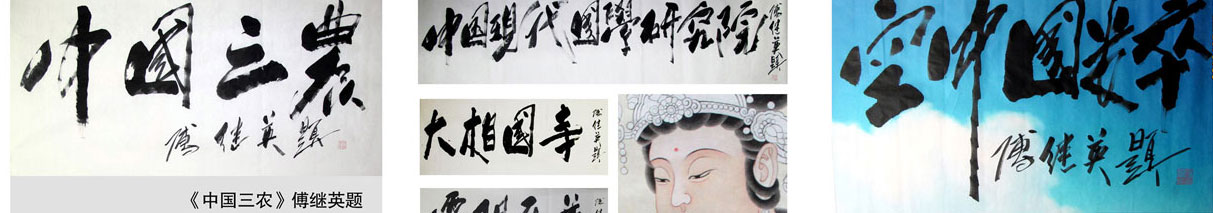 中國三農
傅继英题
《中国三农》傅继英题
中国現代國學研究院
傅继英题
大相國寺
傅继英题
空中國粹
傅继英题